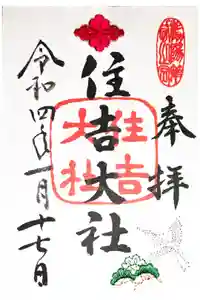 奉拝
住吉大社
住吉
大社
令和四年一月十七日